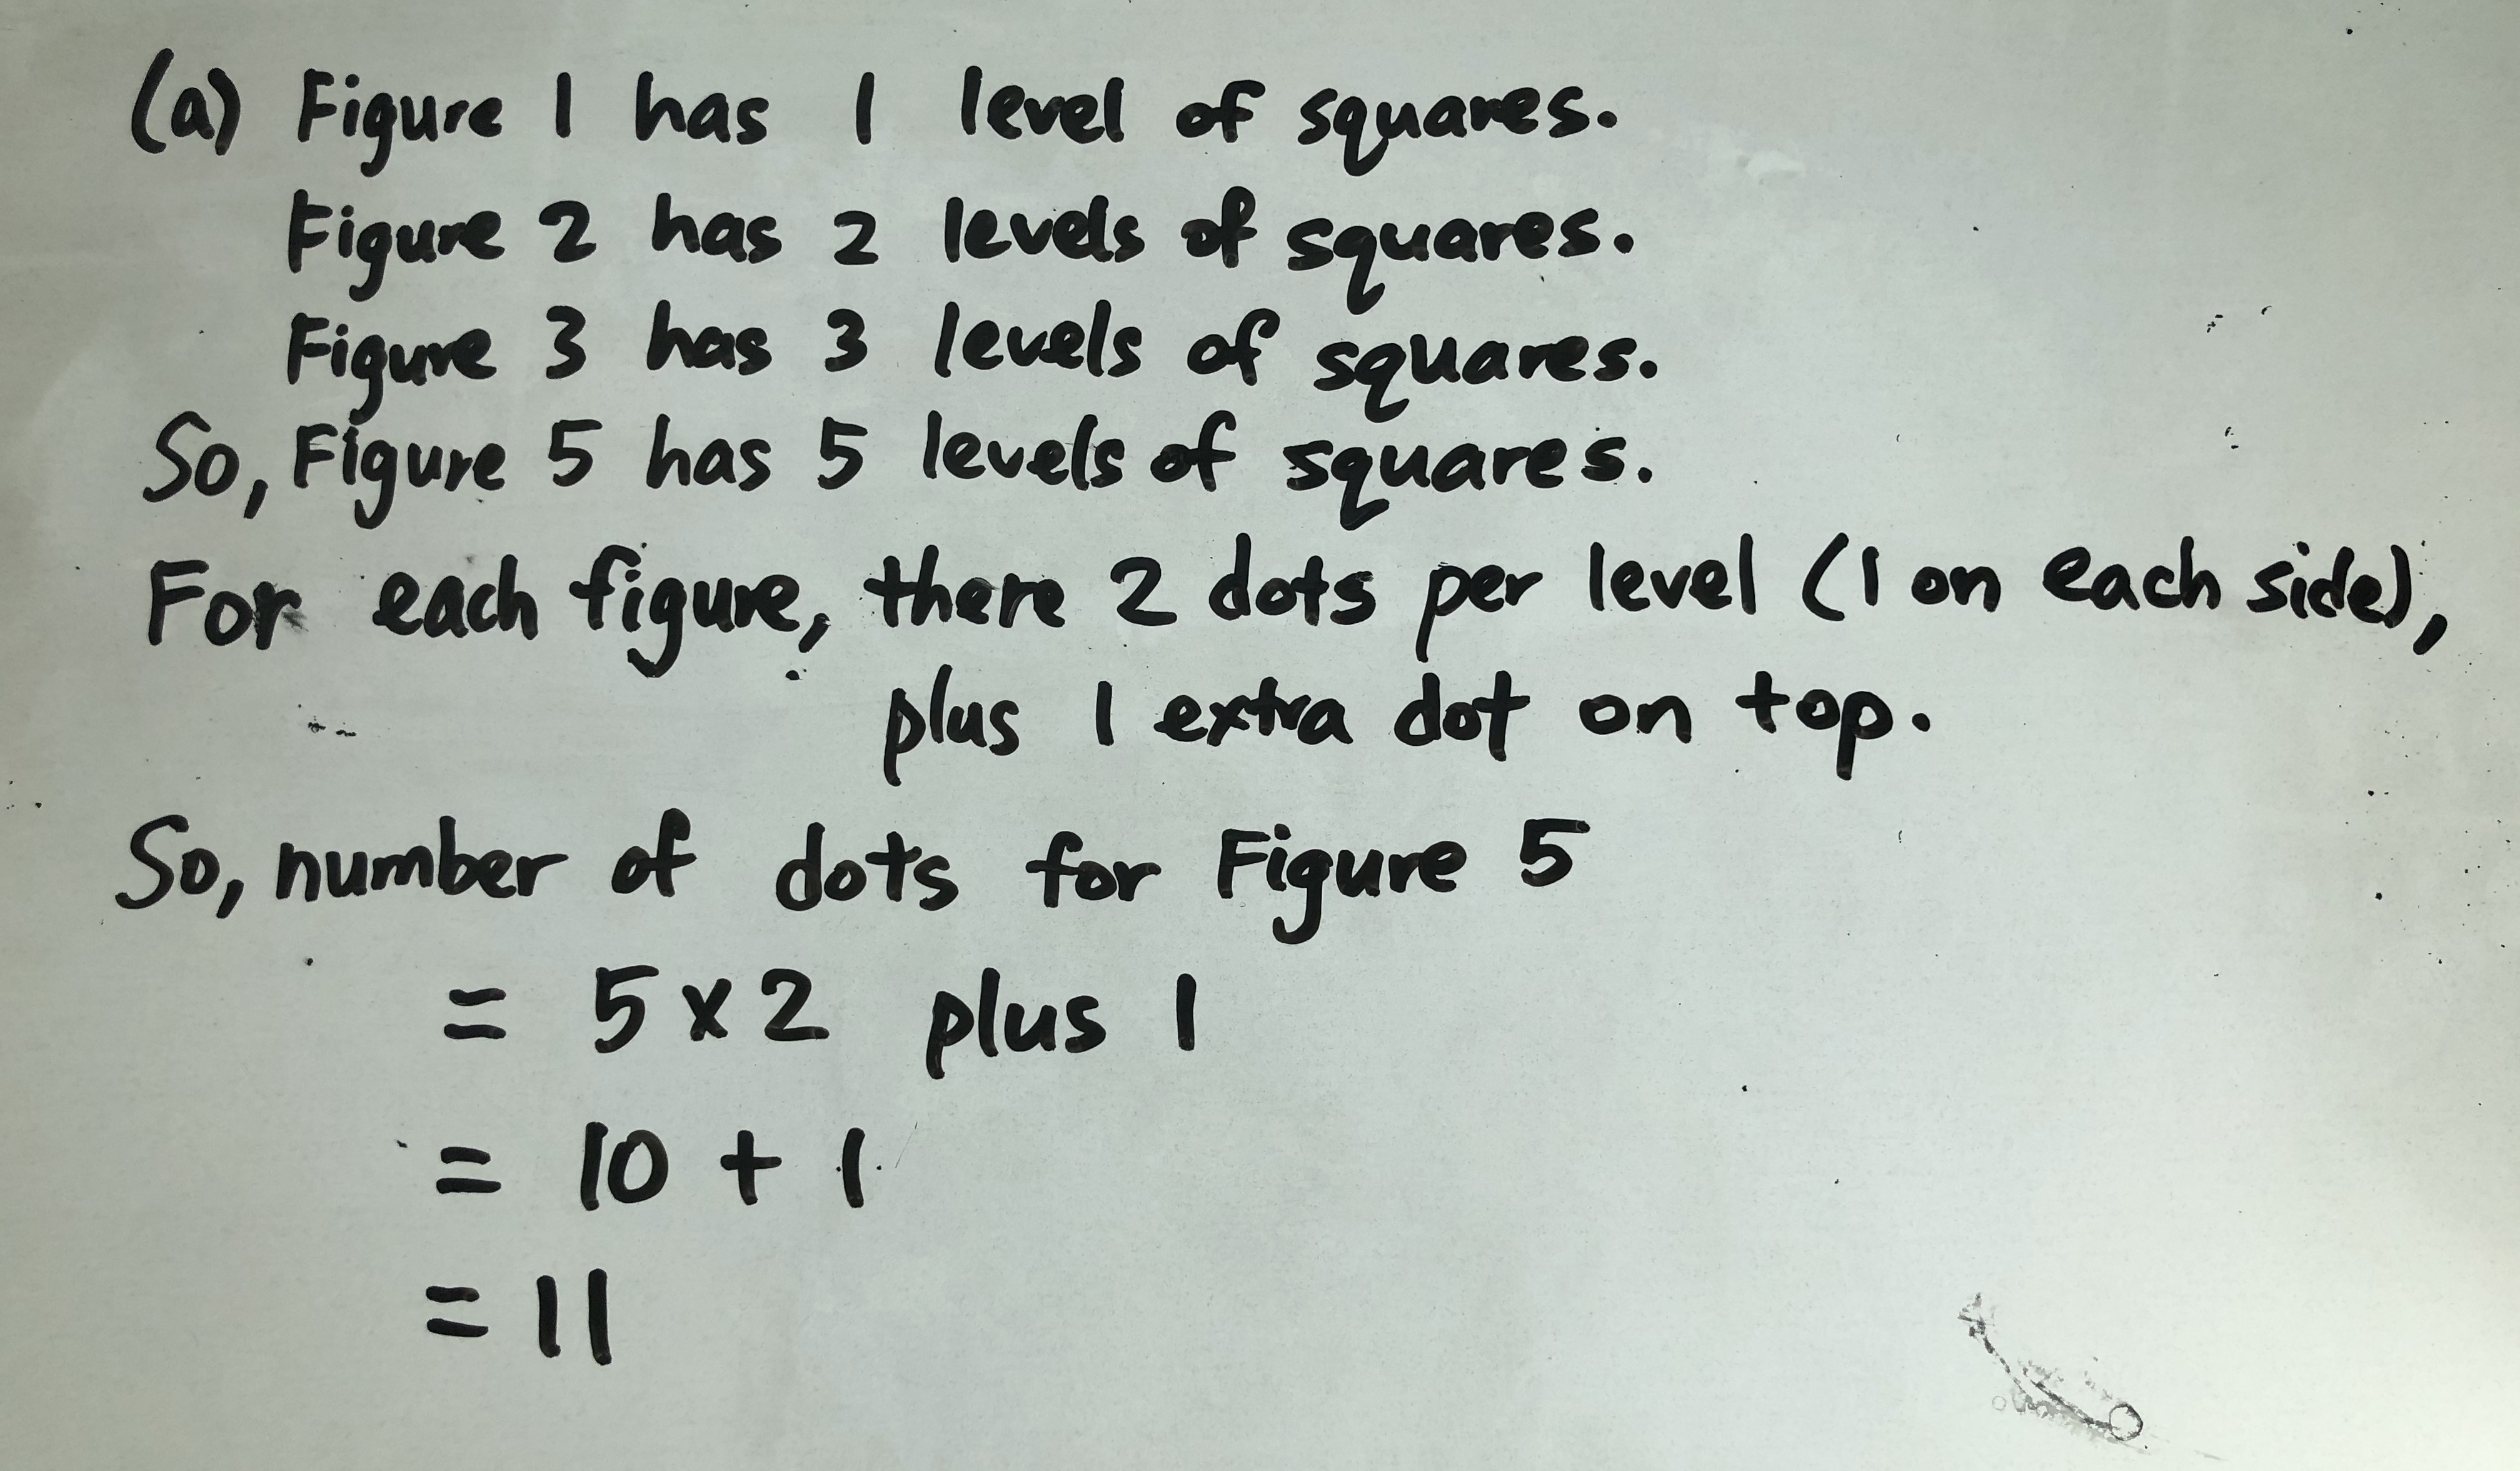 (a) Figure 1 has 1 level of squares.
Figure 2 has 2 levels of squares.
Figure 3 has 3 levels of squares.
So, Figure 5 has 5 levels of squares.
For each figure, there 2 dots per level (1 on each side),
plus 1 extra dot on top.
So, number of dots for Figure 5
= 5 x 2 plus 1
= 10 + 1
= 11